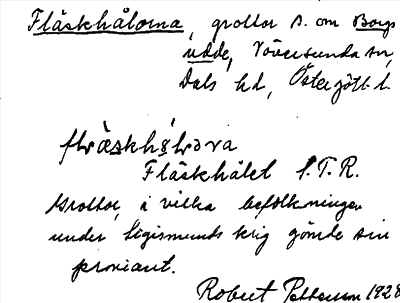 Fläskhålorna, grottor s. om Borgs
udde, Västersunda sn,
Dals hd, Östergötl. l.
Fläskhålet f. T. R.
Grottor, i vilka befolkningen
under Sigismunds krig gömde sin
proviant.
Robert Pettersson 1928